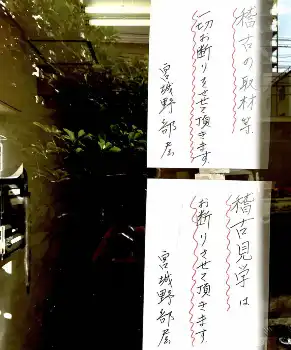 稽古の取材等
一切お断りさせて頂きます
宮城野部屋
稽古見学は
お断りさせて頂きます
宮城野部屋